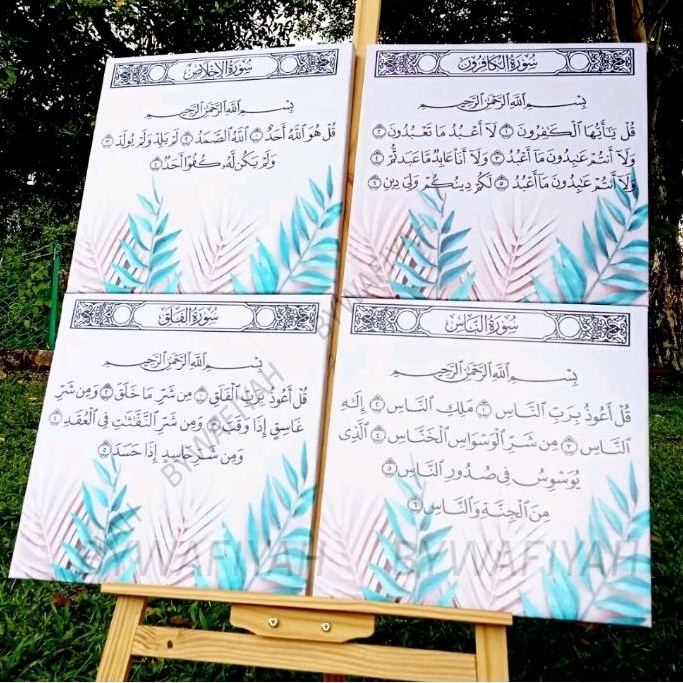 سُورَةُ الكَافِرُونَ
بِسْمِ ٱللَّهِ ٱلرَّحْمَٰنِ ٱلرَّحِيمِ
قُلْ يَٰٓأَيُّهَا ٱلْكَٰفِرُونَ ١ لَآ أَعْبُدُ مَا تَعْبُدُونَ ٢
وَلَآ أَنتُمْ عَٰبِدُونَ مَآ أَعْبُدُ ٣ وَلَآ أَنَا۠ عَابِدٌ مَّا عَبَدتُّمْ ٤
وَلَآ أَنتُمْ عَٰبِدُونَ مَآ أَعْبُدُ ٥ لَكُمْ دِينُكُمْ وَلِىَ دِينِ ٦
سُورَةُ الإِخْلَاصِ
بِسْمِ ٱللَّهِ ٱلرَّحْمَٰنِ ٱلرَّحِيمِ
قُلْ هُوَ ٱللَّهُ أَحَدٌ ١ ٱللَّهُ ٱلصَّمَدُ ٢ لَمْ يَلِدْ وَلَمْ يُولَدْ ٣
وَلَمْ يَكُن لَّهُۥ كُفُوًا أَحَدٌۢ ٤
سُورَةُ النَّاسِ
بِسْمِ ٱللَّهِ ٱلرَّحْمَٰنِ ٱلرَّحِيمِ
قُلْ أَعُوذُ بِرَبِّ ٱلنَّاسِ ١ مَلِكِ ٱلنَّاسِ ٢ إِلَٰهِ
ٱلنَّاسِ ٣ مِن شَرِّ ٱلْوَسْوَاسِ ٱلْخَنَّاسِ ٤ ٱلَّذِى
يُوَسْوِسُ فِى صُدُورِ ٱلنَّاسِ ٥
مِنَ ٱلْجِنَّةِ وَٱلنَّاسِ ٦
سُورَةُ الفَلَقِ
بِسْمِ ٱللَّهِ ٱلرَّحْمَٰنِ ٱلرَّحِيمِ
قُلْ أَعُوذُ بِرَبِّ ٱلْفَلَقِ ١ مِن شَرِّ مَا خَلَقَ ٢ وَمِن شَرِّ
غَاسِقٍ إِذَا وَقَبَ ٣ وَمِن شَرِّ ٱلنَّفَّٰثَٰتِ فِى ٱلْعُقَدِ ٤
وَمِن شَرِّ حَاسِدٍ إِذَا حَسَدَ ٥
BYWAFIYAH
BYWAFIYAH
BYWAFIYAH
BYWAFIYAH